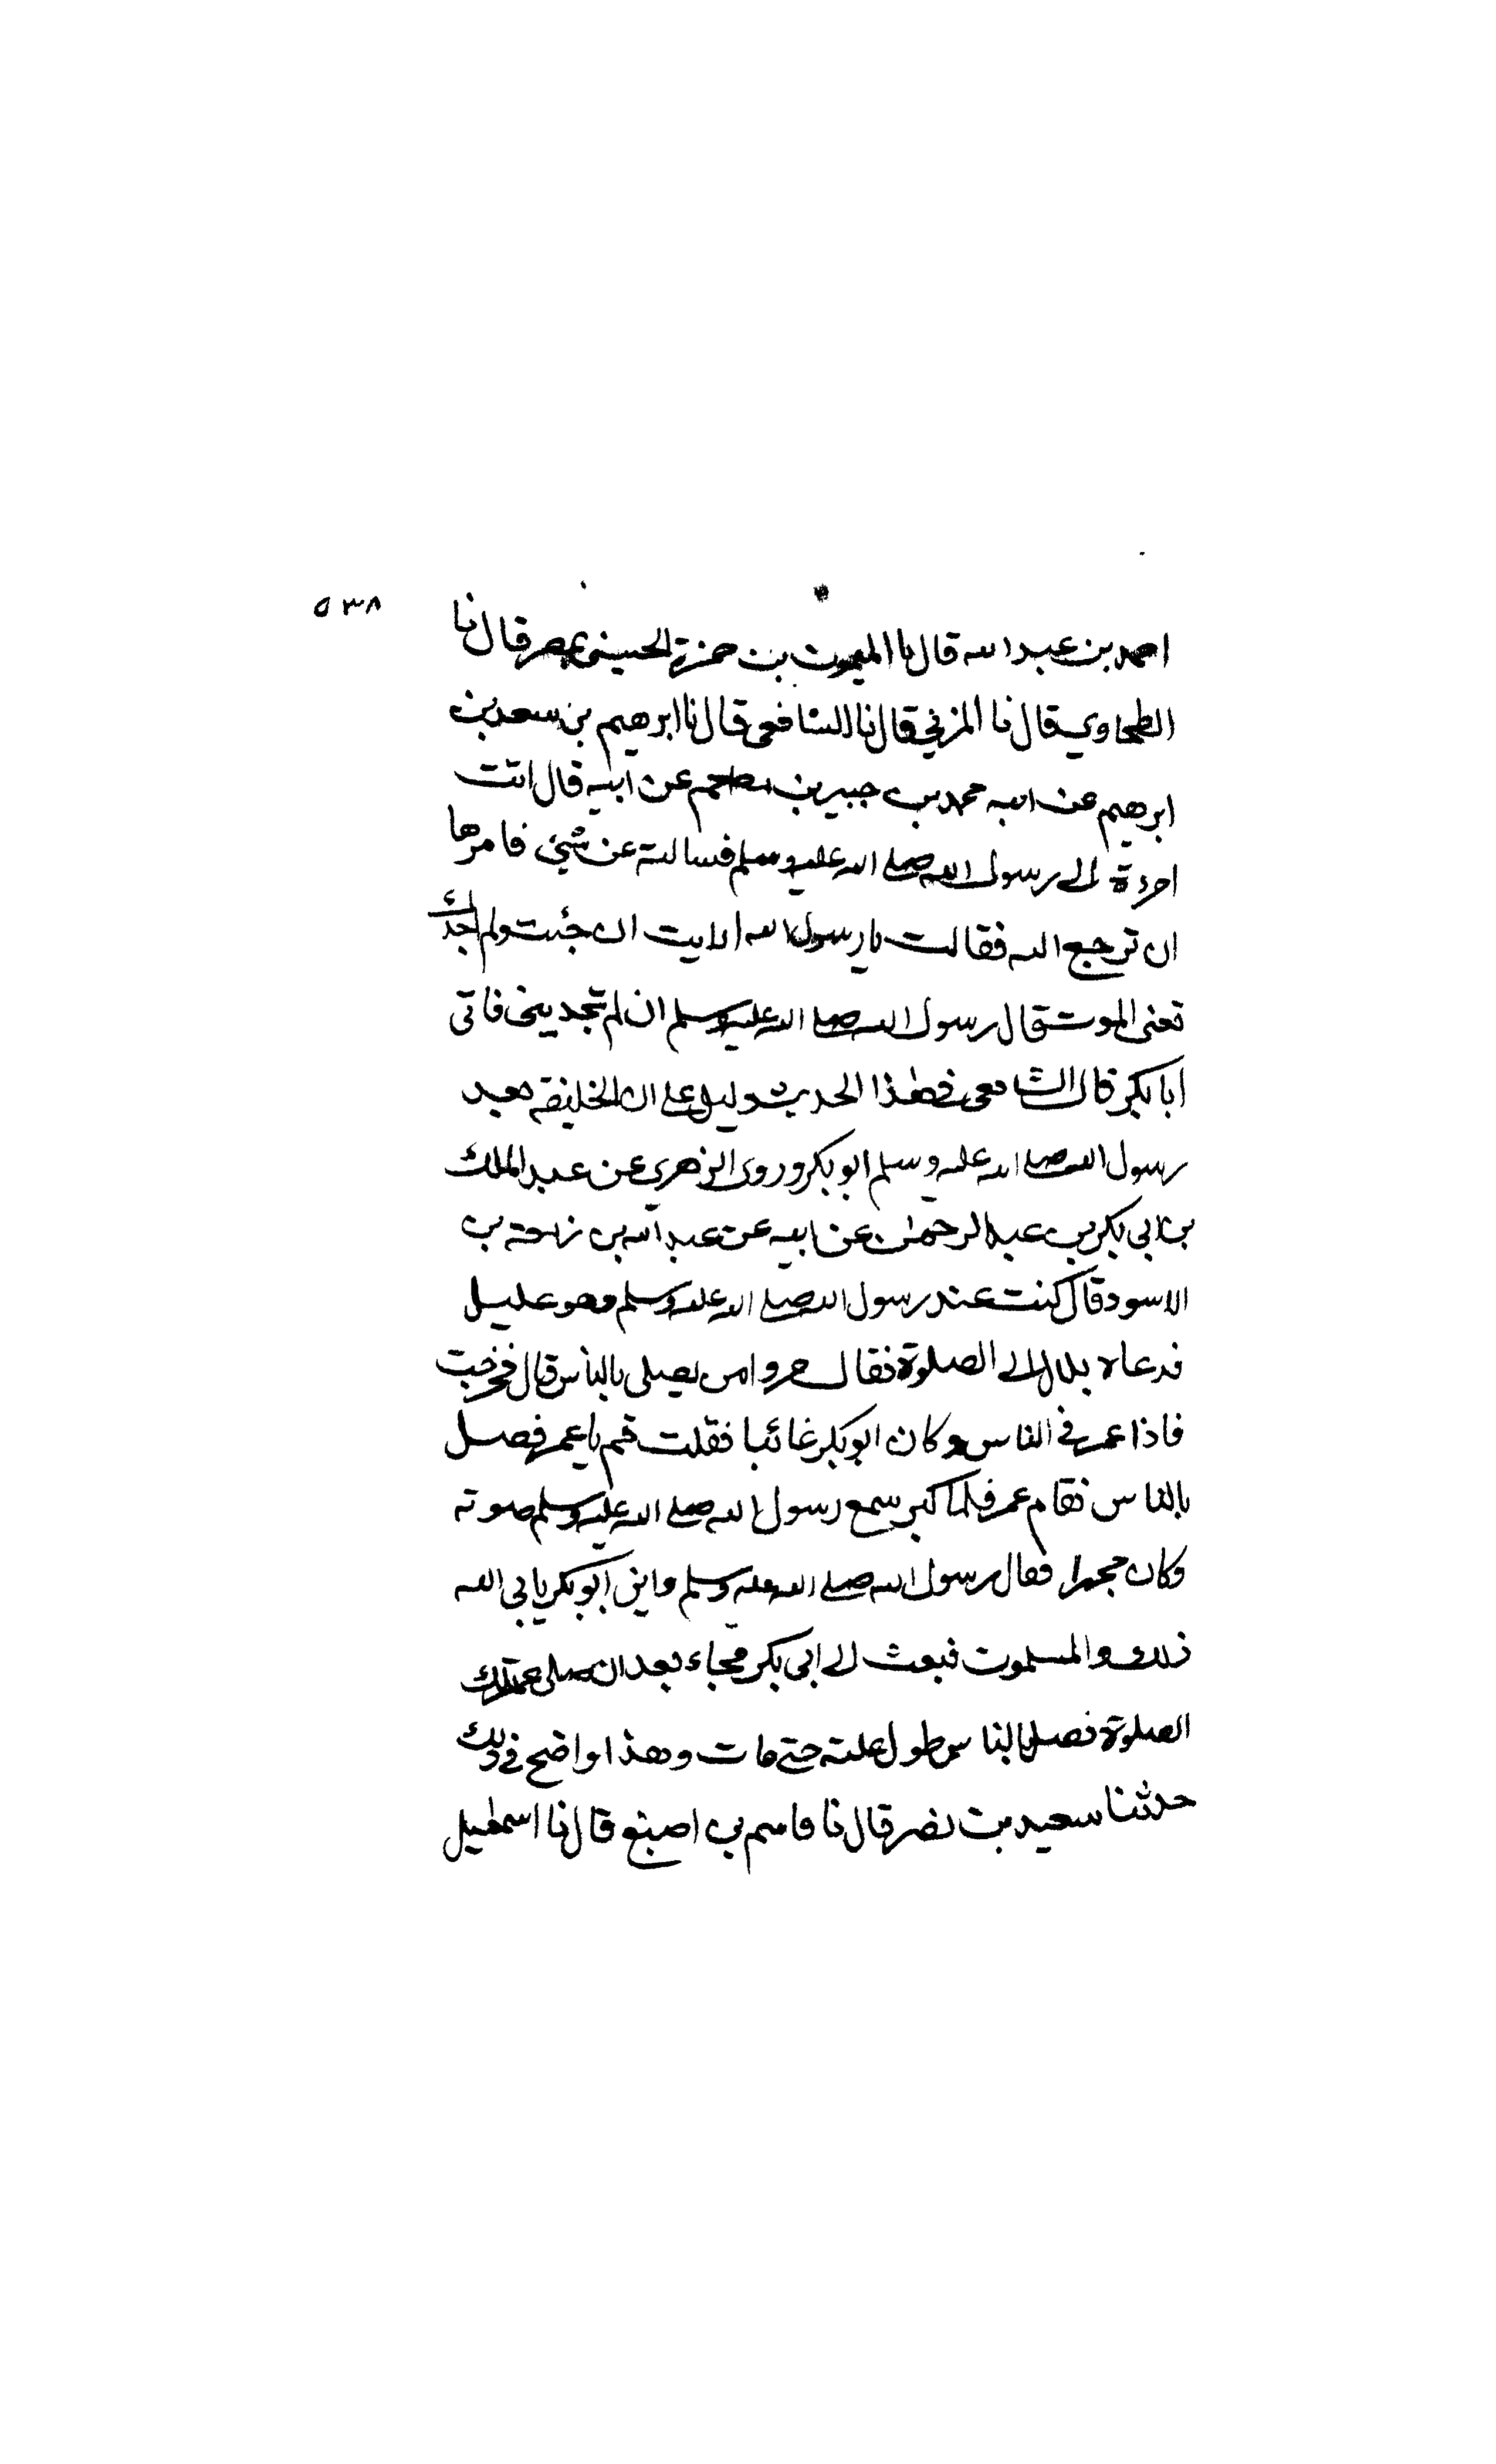 ٥٣٨
احمد بن عبد الله قال نا الميمون بن حمزة الحسيني بمصر قال نا
الطحاوي قال نا المزني قال نا الشافعي قال نا ابرهيم بن سعد بن
ابرهيم عن ابيه محمد بن جبير بن مطعم عن ابيه قال اتت
امرءة الى رسول الله صلى الله عليه وسلم فسالته عن شئ فامرها
ان ترجع اليه فقالت يا رسول الله ارايت ان جئت ولم اجدك
تعنى الموت قال رسول الله صلى الله عليه وسلم ان لم تجديني فاتى
ابا بكر قال الشافعى فى هذا الحديث دليل على ان الخليفة بعد
رسول الله صلى الله عليه وسلم ابو بكر وروى الزهري عن عبد الملك
بن ابي بكر بن عبد الرحمن عن ابيه عن عبد الله بن زمعة بن
الاسود قال كنت عند رسول الله صلى الله عليه وسلم وهو عليل
فدعاه بلال الى الصلوة فقال مروا من يصلى بالناس قال فخرجت
فاذا عمر في الناس وكان ابو بكر غائبا فقلت قم يا عمر فصل
بالناس فقام عمر فلما كبر سمع رسول الله صلى الله عليه وسلم صوته
وكان مجهرا فقال رسول الله صلى الله عليه وسلم واين ابو بكر يابى الله
ذلك والمسلمون فبعث الى ابي بكر فجاء بعد ان صلى عمر تلك
الصلوة فصلى بالناس طول علته حتى مات وهذا واضح في ذلك
حدثنا سعيد بن نصر قال نا قاسم بن اصبغ قال نا اسمعيل